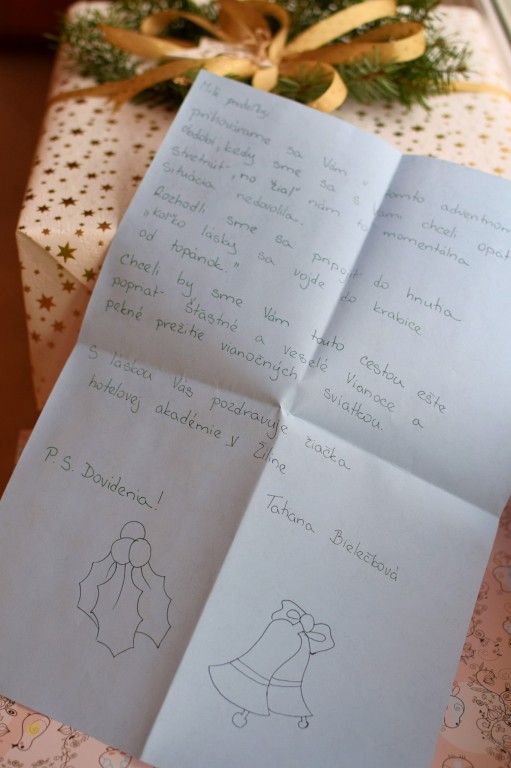 Milé
prihovárame sa Vám v tomto adventnom
období, kedy sme sa s Vami chceli opäť
stretnúť, no žiaľ nám to momentálna
situácia nedovolila.
Rozhodli sme sa pripojiť do hnutia
„koľko lásky sa vojde do krabice
od topánok."
Chceli by sme Vám touto cestou ešte
popriať šťastné a veselé Vianoce a
pekné prežitie vianočných sviatkou
S láskou Vás pozdravuje žiačka
hotelovej akadémie V Žiline
P. S. Dovidenia!
Tatiana Bielečková